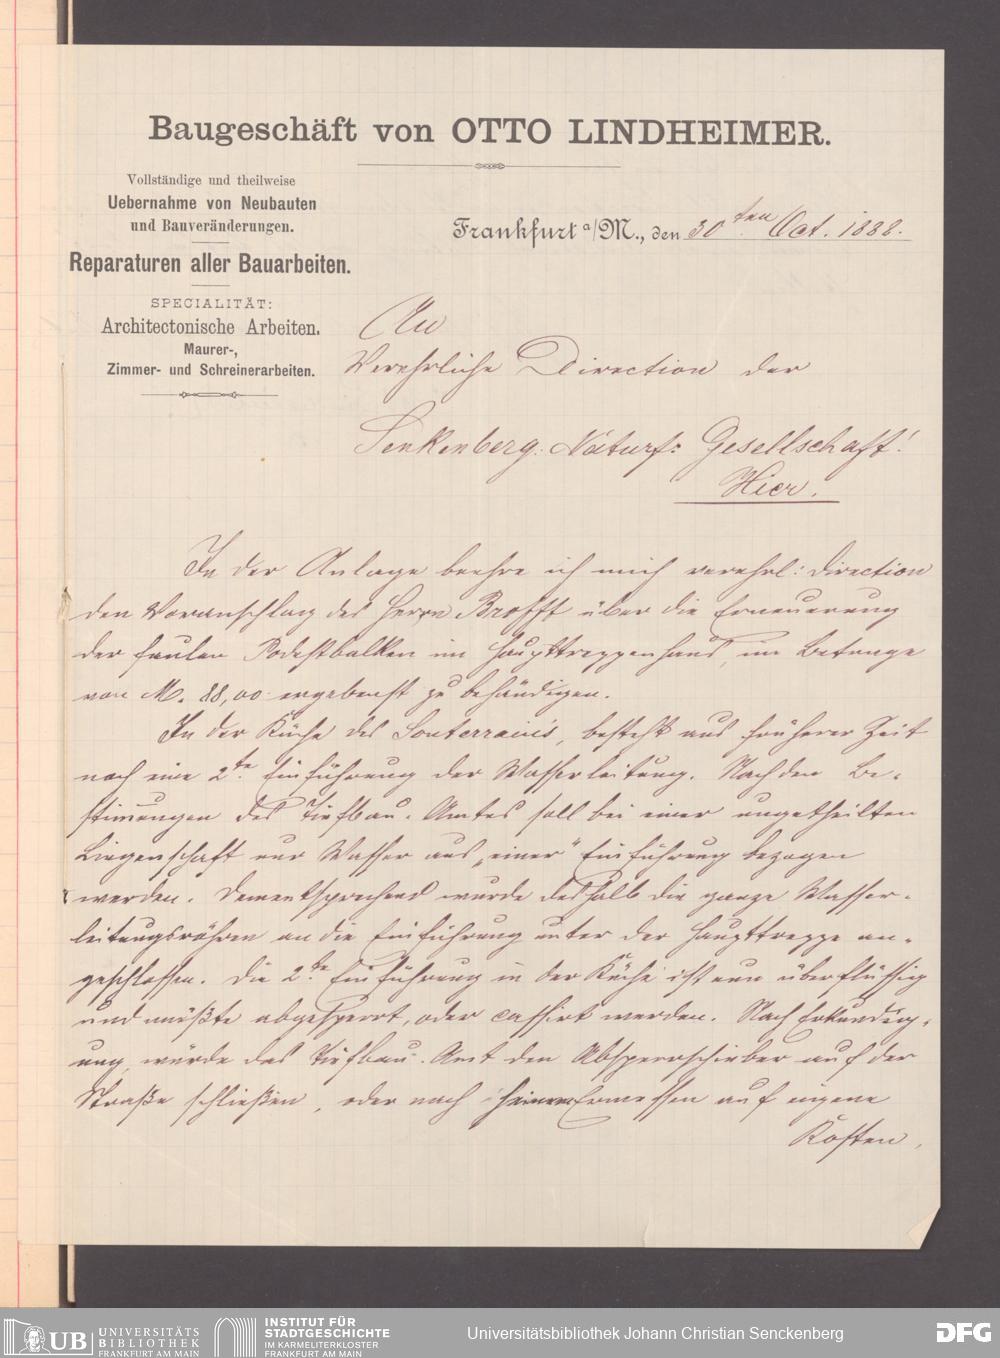 Baugeschäft von OTTO LINDHEIMER.
Vollständige und theilweise
Uebernahme von Neubauten
und Bauveränderungen.
Reparaturen aller Bauarbeiten.
SPECIALITÄT:
Architectonische Arbeiten.
Maurer-,
Zimmer- und Schreinerarbeiten.
Frankfurt a/M., den 30ten Oct. 1888.
An
Verehrliche Direction der
Senkenberg: Naturf: Gesellschaft!
Hier.
In der Anlage beehre ich mich verehrl: Direction
den Voranschlag des Herrn Brofft über die Erneuerung
der faulen Podestbalken im Haupttreppenhaus, im Betrage
von M. 88,00 ergebenst zu behändigen.
In der Küche des Souterrain's, besteht aus früherer Zeit
noch eine 2te Einführung der Wasserleitung. Nach den Be-
stimmungen des Tiefbau-Amtes soll bei einer ungetheilten
Liegenschaft nur Wasser aus „einer" Einführung bezogen
werden. Dementsprechend wurde deshalb die ganze Wasser-
leitungsröhren an die Einführung unter der Haupttreppe an-
geschlossen. Die 2te Einführung in der Küche ist nun überflüssig
und müßte abgesperrt, oder cassirt werden. Nach Erkundig-
ung, würde das Tiefbau-Amt den Absperrschieber auf der
Straße schließen, oder nach Ermessen auf eigene
Kosten,
UB UNIVERSITÄTS
BIBLIOTHEK
FRANKFURT AM MAIN
INSTITUT FÜR
STADTGESCHICHTE
IM KARMELITERKLOSTER
FRANKFURT AM MAIN
Universitätsbibliothek Johann Christian Senckenberg
DFG